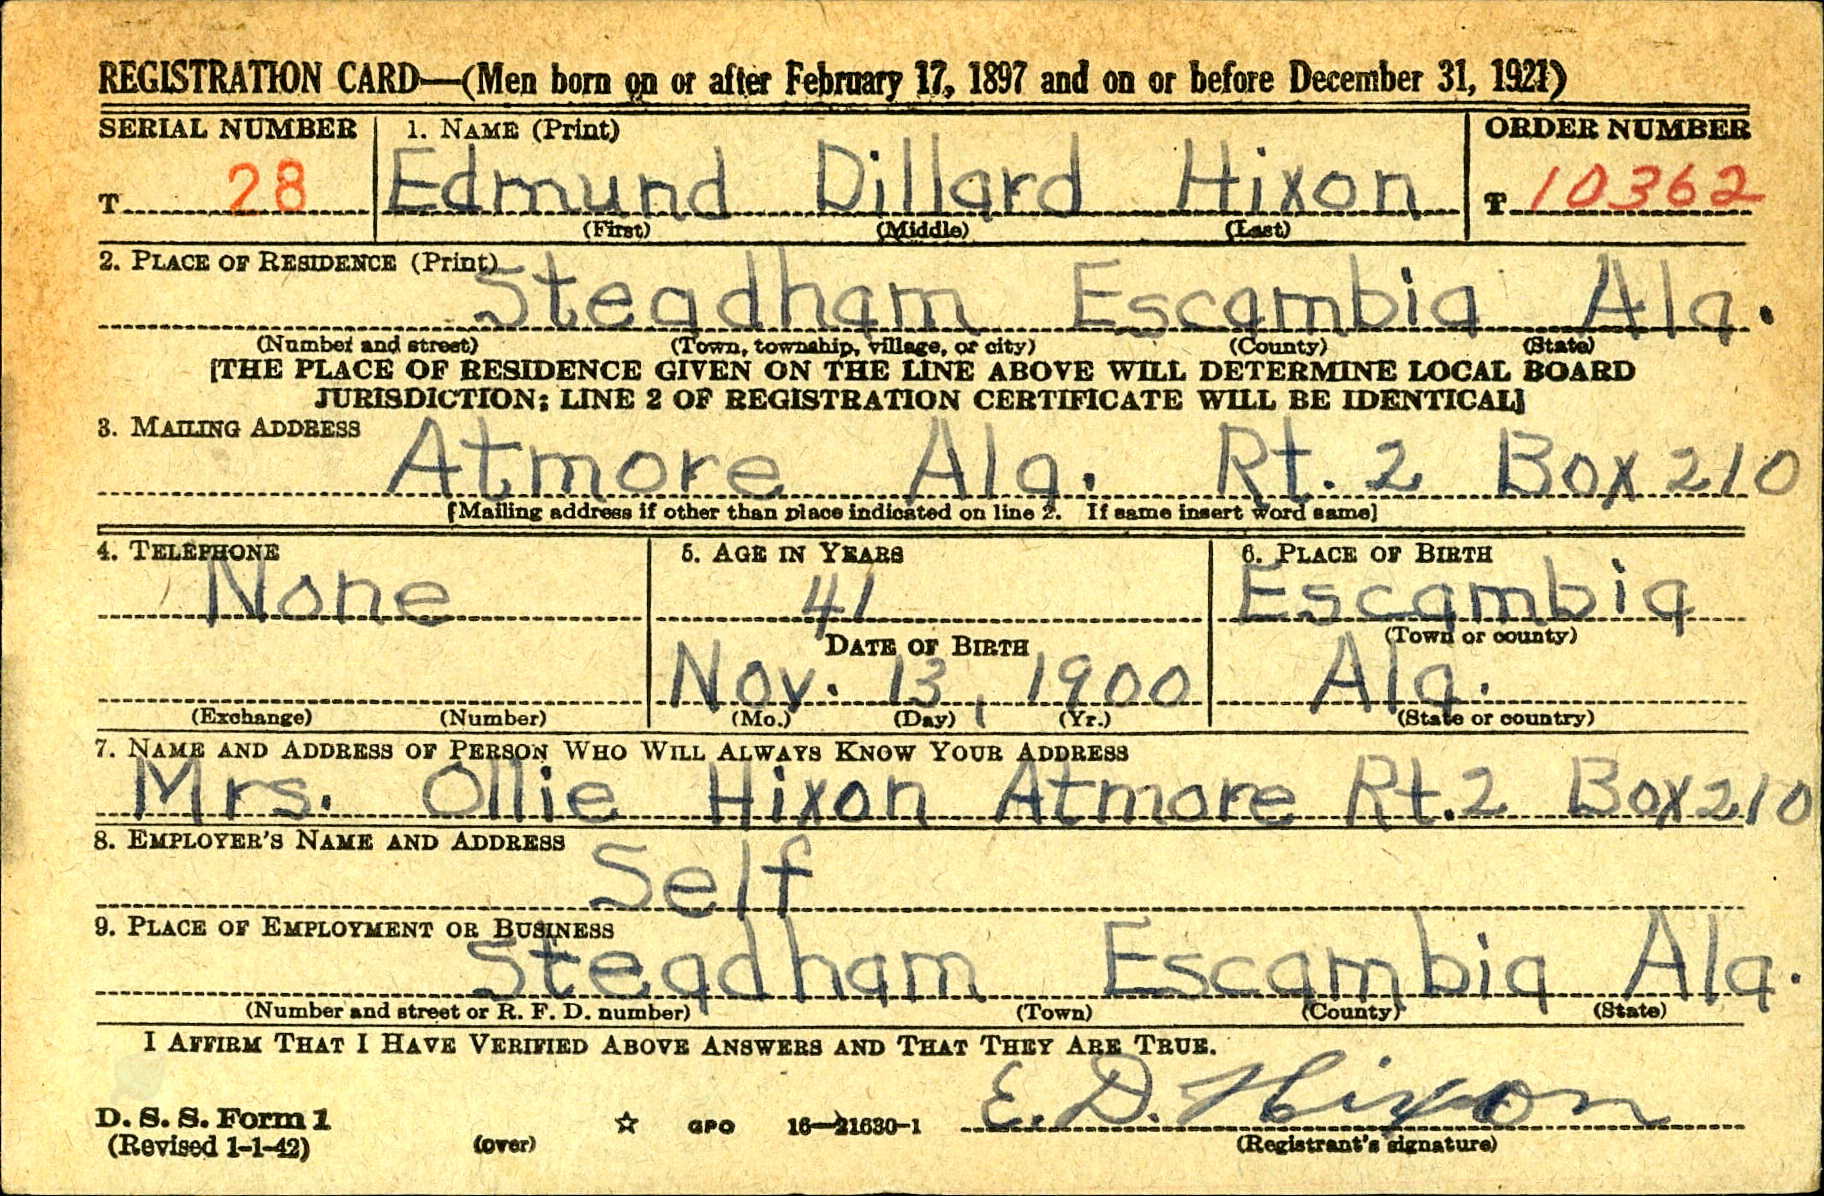 REGISTRATION CARD—(Men born on or after February 17, 1897 and on or before December 31, 1921)
SERIAL NUMBER 1. NAME (Print) ORDER NUMBER
T 28 Edmund Dillard Hixon T 10362
(First) (Middle) (Last)
2. PLACE OF RESIDENCE (Print)
Steadham Escambia Ala.
(Number and street) (Town, township, village, or city) (County) (State)
[THE PLACE OF RESIDENCE GIVEN ON THE LINE ABOVE WILL DETERMINE LOCAL BOARD
JURISDICTION; LINE 2 OF REGISTRATION CERTIFICATE WILL BE IDENTICAL]
3. MAILING ADDRESS
Atmore Ala. Rt. 2 Box 210
[Mailing address if other than place indicated on line 2. If same insert word same]
4. TELEPHONE 5. AGE IN YEARS 6. PLACE OF BIRTH
None 41 Escambia
DATE OF BIRTH (Town or county)
Nov. 13, 1900 Ala.
(Exchange) (Number) (Mo.) (Day) (Yr.) (State or country)
7. NAME AND ADDRESS OF PERSON WHO WILL ALWAYS KNOW YOUR ADDRESS
Mrs. Ollie Hixon Atmore Rt. 2 Box 210
8. EMPLOYER'S NAME AND ADDRESS
Self
9. PLACE OF EMPLOYMENT OR BUSINESS
Steadham Escambia Ala.
(Number and street or R. F. D. number) (Town) (County) (State)
I AFFIRM THAT I HAVE VERIFIED ABOVE ANSWERS AND THAT THEY ARE TRUE.
E. D. Hixon
D. S. S. Form 1
(Revised 1-1-42) (over) ☆ GPO 16—21630-1 (Registrant's signature)